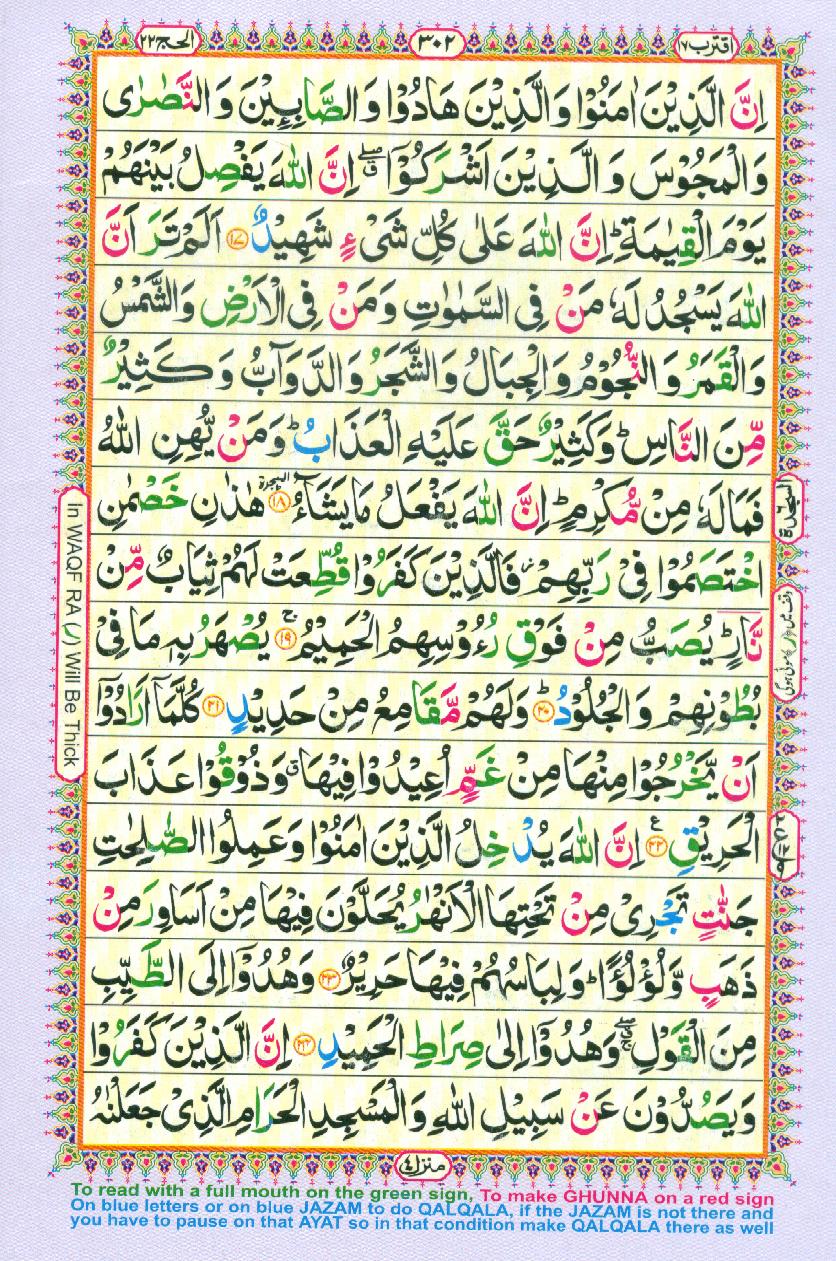 اقترب ١٧
٣٠٢
الحج ٢٢
اِنَّ الَّذِيْنَ اٰمَنُوْا وَالَّذِيْنَ هَادُوْا وَالصَّابِـِٕيْنَ وَالنَّصٰرٰى
وَالْمَجُوْسَ وَالَّذِيْنَ اَشْرَكُوْۤا ۖ اِنَّ اللّٰهَ يَفْصِلُ بَيْنَهُمْ
يَوْمَ الْقِيٰمَةِ ؕ اِنَّ اللّٰهَ عَلٰى كُلِّ شَىْءٍ شَهِيْدٌ ١٧ اَلَمْ تَرَ اَنَّ
اللّٰهَ يَسْجُدُ لَهٗ مَنْ فِى السَّمٰوٰتِ وَمَنْ فِى الْاَرْضِ وَالشَّمْسُ
وَالْقَمَرُ وَالنُّجُوْمُ وَالْجِبَالُ وَالشَّجَرُ وَالدَّوَآبُّ وَكَثِيْرٌ
مِّنَ النَّاسِ ؕ وَكَثِيْرٌ حَقَّ عَلَيْهِ الْعَذَابُ ؕ وَمَنْ يُّهِنِ اللّٰهُ
فَمَا لَهٗ مِنْ مُّكْرِمٍ ؕ اِنَّ اللّٰهَ يَفْعَلُ مَا يَشَآءُ ١٨ السجدة هٰذٰنِ خَصْمٰنِ
السجدة
اخْتَصَمُوْا فِىْ رَبِّهِمْ ؗ فَالَّذِيْنَ كَفَرُوْا قُطِّعَتْ لَهُمْ ثِيَابٌ مِّنْ
نَّارٍ ؕ يُصَبُّ مِنْ فَوْقِ رُءُوْسِهِمُ الْحَمِيْمُ ١٩ يُصْهَرُ بِهٖ مَا فِىْ
بُطُوْنِهِمْ وَالْجُلُوْدُ ٢٠ وَلَهُمْ مَّقَامِعُ مِنْ حَدِيْدٍ ٢١ كُلَّمَاۤ اَرَادُوْۤا
اَنْ يَّخْرُجُوْا مِنْهَا مِنْ غَمٍّ اُعِيْدُوْا فِيْهَا ۗ وَذُوْقُوْا عَذَابَ
الْحَرِيْقِ ٢٢ اِنَّ اللّٰهَ يُدْخِلُ الَّذِيْنَ اٰمَنُوْا وَعَمِلُوا الصّٰلِحٰتِ
جَنّٰتٍ تَجْرِىْ مِنْ تَحْتِهَا الْاَنْهٰرُ يُحَلَّوْنَ فِيْهَا مِنْ اَسَاوِرَ مِنْ
ذَهَبٍ وَّلُؤْلُؤًا ؕ وَلِبَاسُهُمْ فِيْهَا حَرِيْرٌ ٢٣ وَهُدُوْۤا اِلَى الطَّيِّبِ
مِنَ الْقَوْلِ ۖ وَهُدُوْۤا اِلٰى صِرَاطِ الْحَمِيْدِ ٢٤ اِنَّ الَّذِيْنَ كَفَرُوْا
وَيَصُدُّوْنَ عَنْ سَبِيْلِ اللّٰهِ وَالْمَسْجِدِ الْحَرَامِ الَّذِىْ جَعَلْنٰهُ
In WAQF RA (ر) Will Be Thick
منزل ٤
To read with a full mouth on the green sign, To make GHUNNA on a red sign
On blue letters or on blue JAZAM to do QALQALA, if the JAZAM is not there and
you have to pause on that AYAT so in that condition make QALQALA there as well